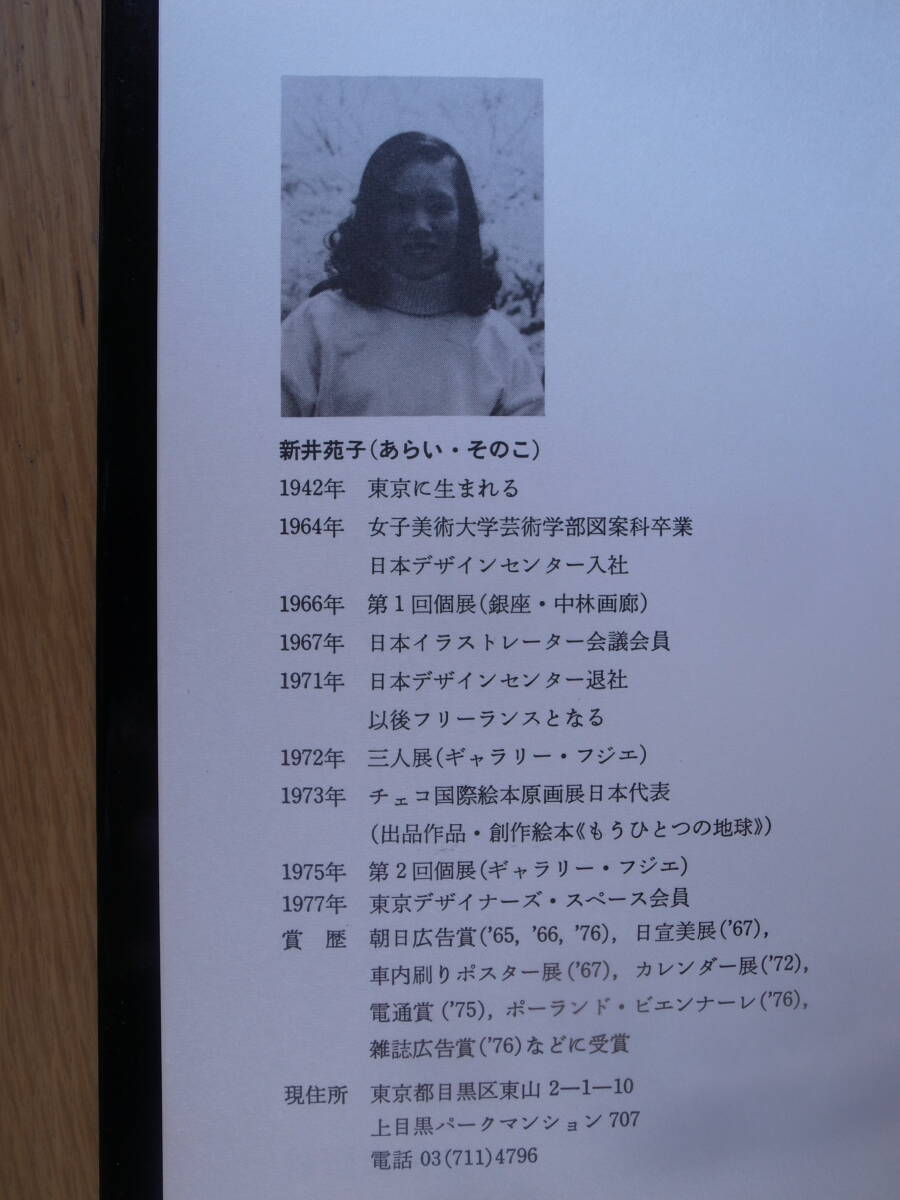 新井苑子(あらい・そのこ)
1942年 東京に生まれる
1964年 女子美術大学芸術学部図案科卒業
日本デザインセンター入社
1966年 第1回個展(銀座・中林画廊)
1967年 日本イラストレーター会議会員
1971年 日本デザインセンター退社
以後フリーランスとなる
1972年 三人展(ギャラリー・フジエ)
1973年 チェコ国際絵本原画展日本代表
(出品作品・創作絵本《もうひとつの地球》)
1975年 第2回個展(ギャラリー・フジエ)
1977年 東京デザイナーズ・スペース会員
賞 歴 朝日広告賞('65, '66, '76), 日宣美展('67),
車内刷りポスター展('67), カレンダー展('72),
電通賞('75), ポーランド・ビエンナーレ('76),
雑誌広告賞('76)などに受賞
現住所 東京都目黒区東山 2―1―10
上目黒パークマンション 707
電話 03(711)4796